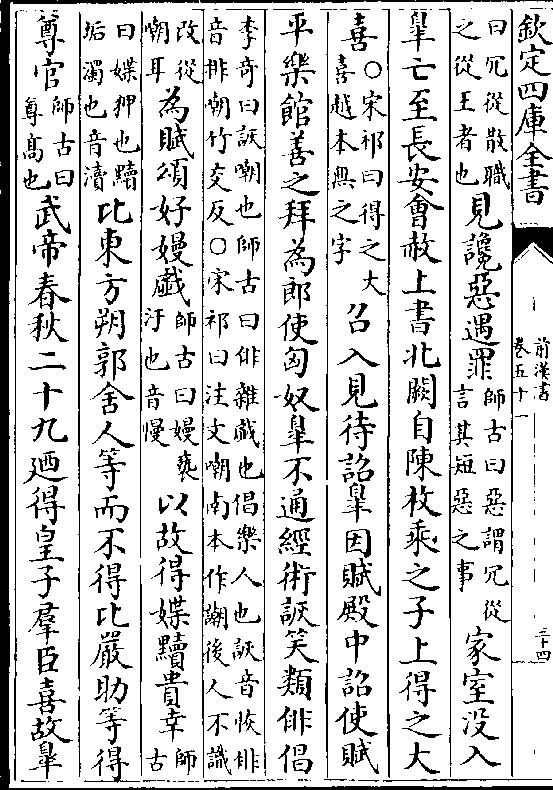 欽定四庫全書
前漢書
卷五十一
三十四
曰冗從散職
之從王者也
見讒惡遇罪
師古曰惡謂冗從
言其短惡之事
家室沒入
臯亡至長安會赦上書北闕自陳枚乘之子上得之大
喜
○宋祁曰得之大
喜越本無之字
召入見待詔臯因賦殿中詔使賦
平樂館善之拜為郎使匈奴臯不通經術詼笑類俳倡
李奇曰詼嘲也師古曰俳雜戲也倡樂人也詼音恢俳
音排嘲竹交反○宋祁曰注文嘲南本作謿後人不識
改從
嘲耳
為賦頌好嫚戲
師古曰嫚褻
汙也音慢
以故得媟黷貴幸
師古
曰媟狎也黷
垢濁也音瀆
比東方朔郭舍人等而不得比嚴助等得
尊官
師古曰
尊高也
武帝春秋二十九廼得皇子羣臣喜故臯